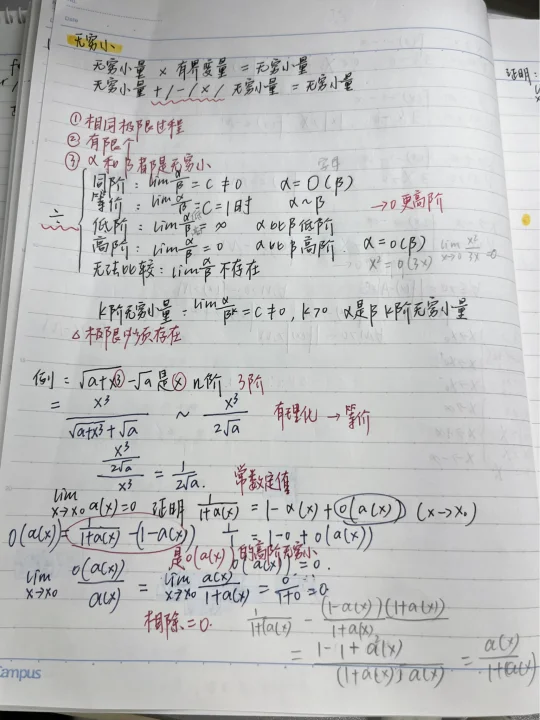 无穷小
无穷小量 × 有界变量 = 无穷小量
无穷小量 + / - / × / 无穷小量 = 无穷小量
证明:
① 相同极限过程
② 有限个
③ α和β都是无穷小
÷
同阶: lim α/β = C ≠ 0 α = O(β)
等价: lim α/β = C = 1时 α~β → 0 更高阶
低阶: lim α/β = ∞ α比β低阶
高阶: lim α/β = 0 α比β高阶. α = o(β) lim x→0 x²/3x = 0
x² = o(3x)
无法比较: lim α/β 不存在
K阶无穷小量: lim α/β^k = C ≠ 0, K>0 α是β K阶无穷小量
△ 极限必须存在
例: √(a+x³) - √a 是 x n阶 3阶
= x³/(√(a+x³)+√a) ~ x³/(2√a) 有理化 → 等价
(x³/(2√a))/x³ = 1/(2√a). 常数定值
lim x→x₀ a(x)=0 证明 1/(1+a(x)) = 1-a(x)+o(a(x)) (x→x₀)
o(a(x)) = 1/(1+a(x)) - (1-a(x)) 1/1 = 1-0+o(a(x))
是o(a(x))的高阶无穷小 o(a(x)) = 0.
lim x→x₀ o(a(x))/a(x) = lim x→x₀ a(x)/(1+a(x)) = 0/(1+0) = 0.
相除=0. 1/(1+a(x)) - (1-a(x))(1+a(x))/(1+a(x))
= (1-1+a²(x))/((1+a(x))·a(x)) = a(x)/(1+a(x))
Campus